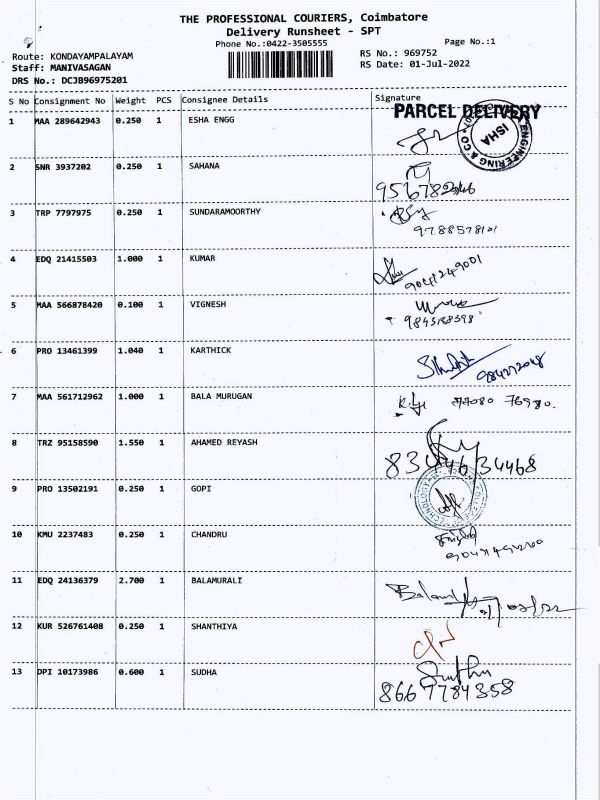 THE PROFESSIONAL COURIERS, Coimbatore
Delivery Runsheet - SPT
Phone No.:0422-3505555
Page No.:1
Route: KONDAYAMPALAYAM
RS No.: 969752
Staff: MANIVASAGAN
RS Date: 01-Jul-2022
DRS No.: DCJB96975201
S No Consignment No Weight PCS Consignee Details Signature
PARCEL DELIVERY
1 MAA 289642943 0.250 1 ESHA ENGG
ISHA
ENGINEERING & CO
2 SNR 3937202 0.250 1 SAHANA
3 TRP 7797975 0.250 1 SUNDARAMOORTHY
9788578101
4 EDQ 21415503 1.000 1 KUMAR
9041249001
5 MAA 566878420 0.100 1 VIGNESH
6 PRO 13461399 1.040 1 KARTHICK
7 MAA 561712962 1.000 1 BALA MURUGAN
77080 76980.
8 TRZ 95158590 1.550 1 AHAMED REYASH
9 PRO 13502191 0.250 1 GOPI
10 KMU 2237483 0.250 1 CHANDRU
11 EDQ 24136379 2.700 1 BALAMURALI
12 KUR 526761408 0.250 1 SHANTHIYA
13 DPI 10173986 0.600 1 SUDHA
8667784358